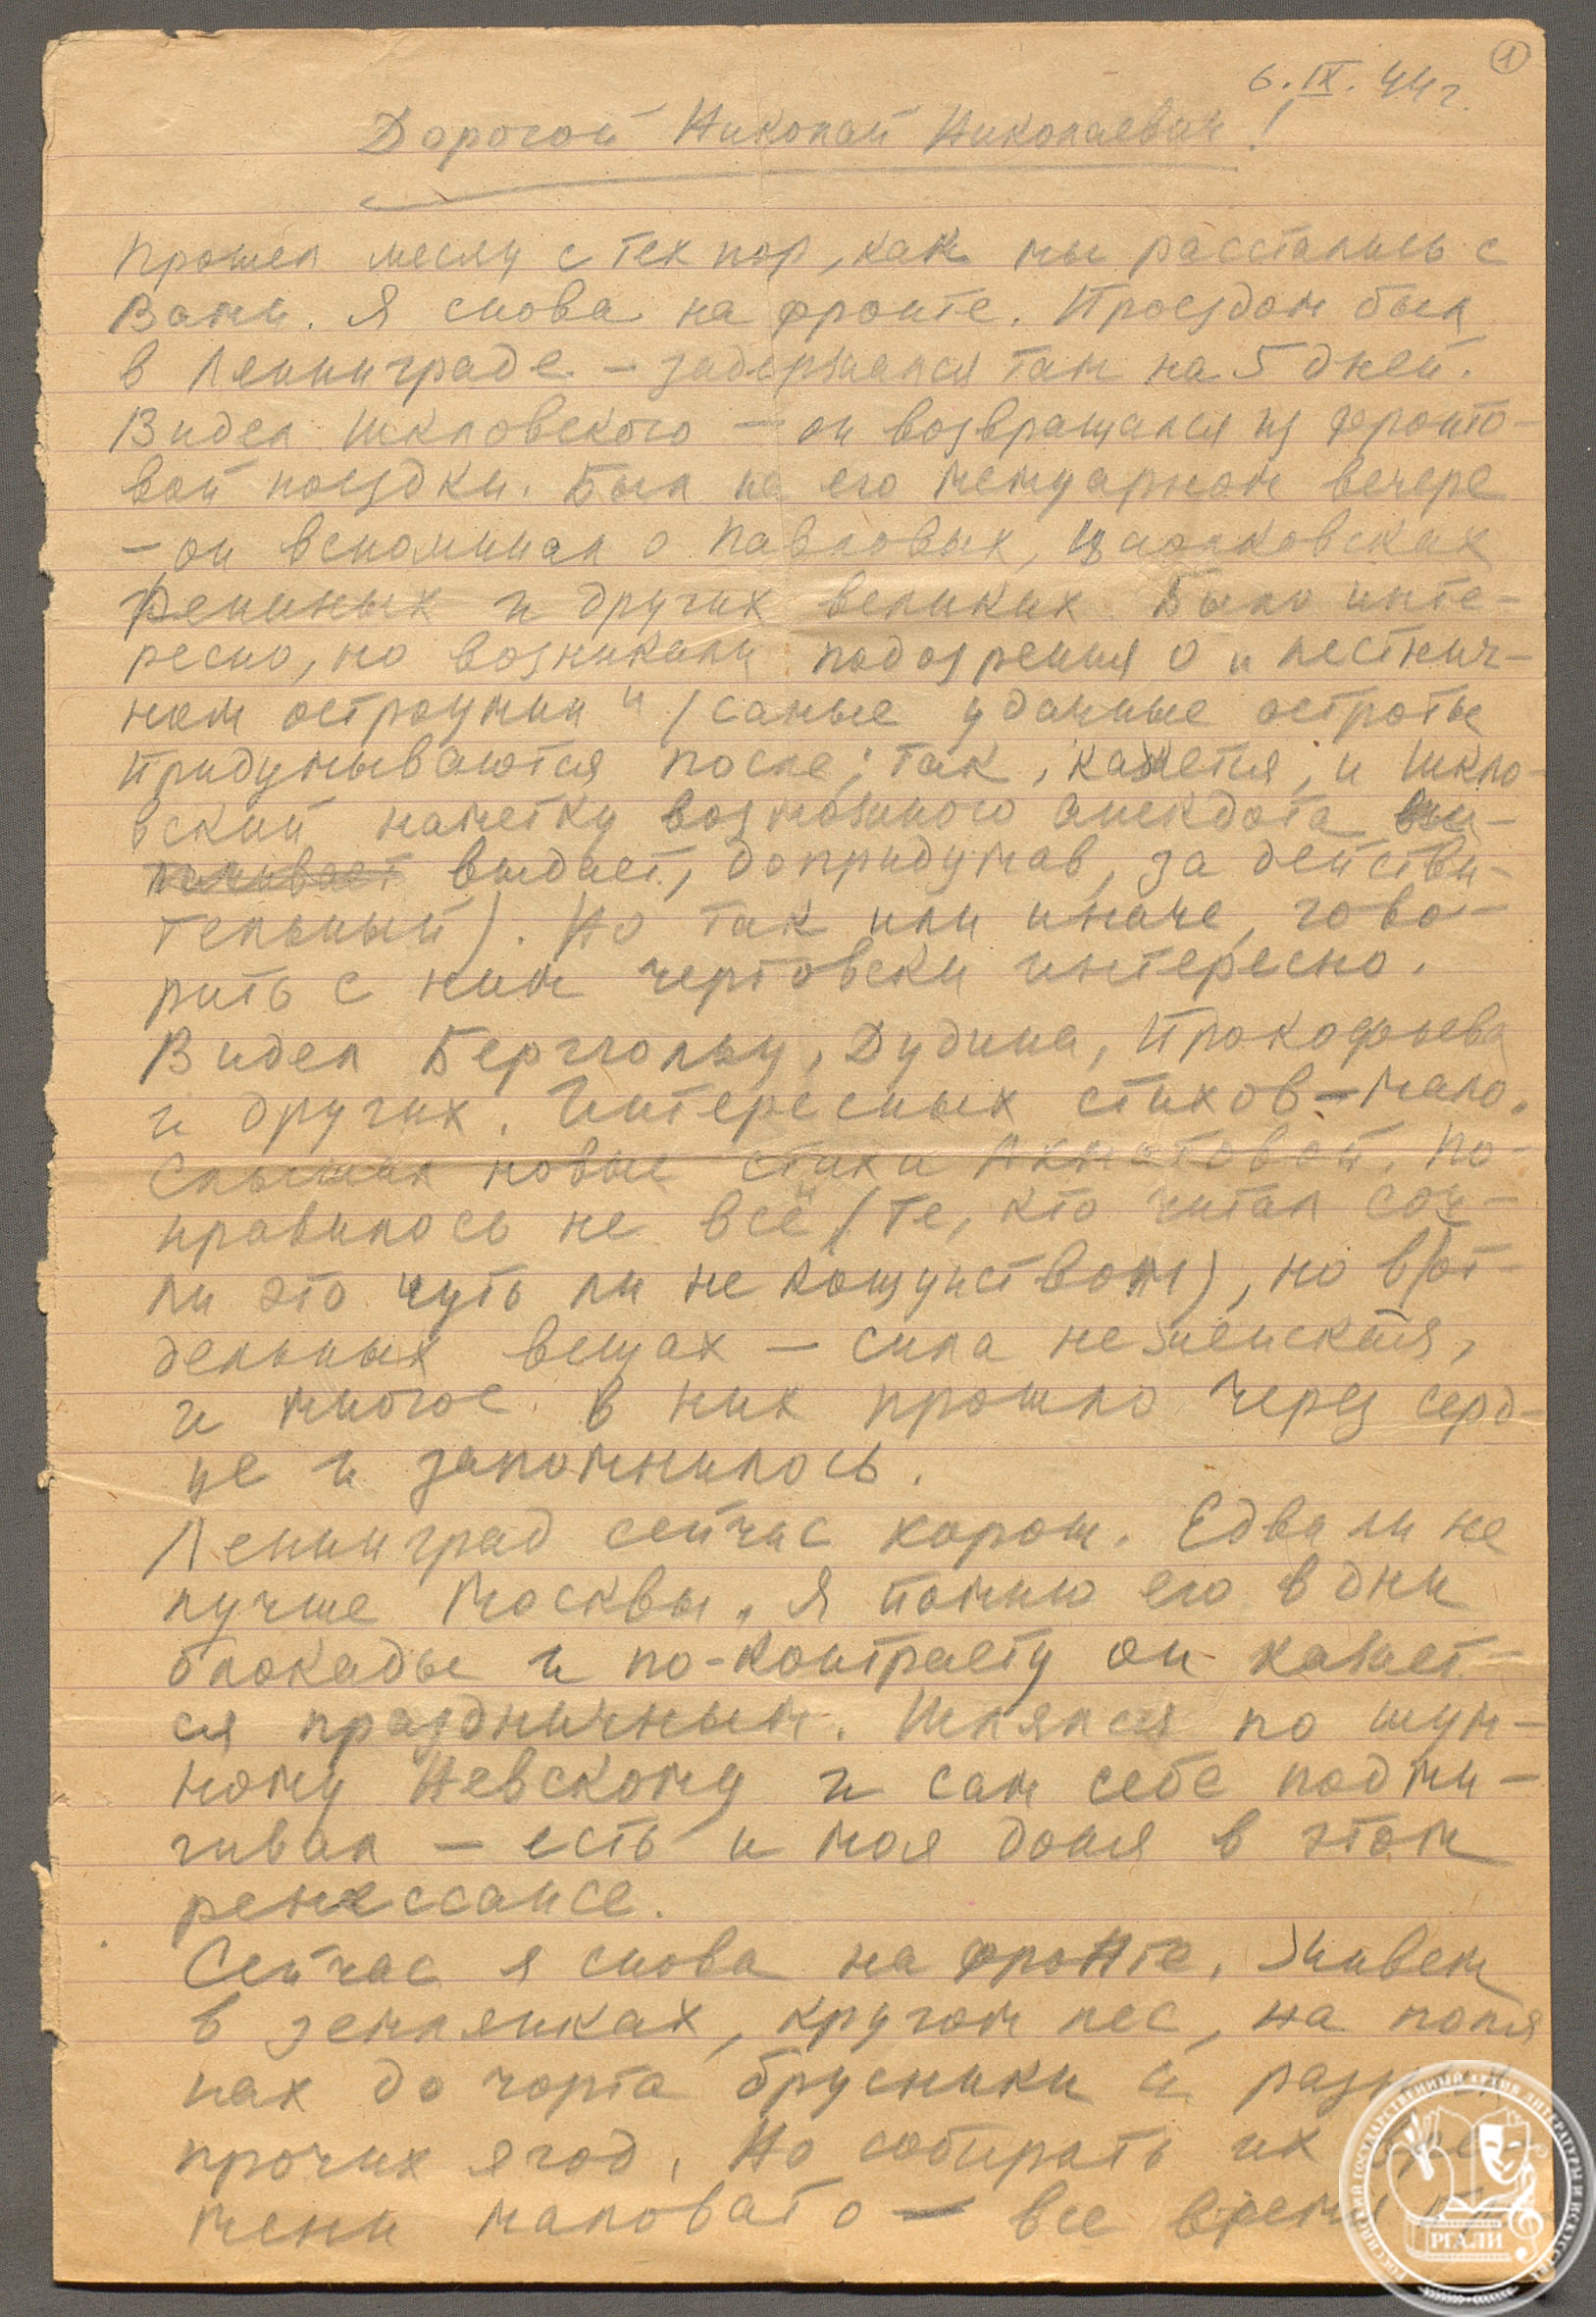 1
6.IX.44г.
Дорогой Николай Николаевич!
Прошел месяц с тех пор, как мы расстались с
Вами. Я снова на фронте. Проездом был
в Ленинграде – задержался там на 5 дней.
Видел Шкловского – он возвращался из фронто-
вой поездки. Был на его мемуарном вечере
– он вспоминал о Павловых, Циолковских
Репиных и других великих. Было инте-
ресно, но возникали подозрения о „лестнич-
ном остроумии" (самые удачные остроты
придумываются после; так, кажется, и Шкло-
вский наметку возможного анекдота
выдает, допридумав, за действи-
тельный). Но так или иначе, гово-
рить с ним чертовски интересно.
Видел Берггольц, Дудина, Прокофьева
и других. Интересных стихов – мало.
Слышал новые стихи Ахматовой. По-
нравилось не всё (те, кто читал соч-
ли это чуть ли не кощунством), но в от-
дельных вещах – сила не женская,
и многое в них прошло через серд-
це и запомнилось.
Ленинград сейчас хорош. Едва ли не
лучше Москвы. Я помню его в дни
блокады и по-контрасту он кажет-
ся праздничным. Шлялся по шум-
ному Невскому и сам себе подми-
гивал – есть и моя доля в этом
ренессансе.
Сейчас я снова на фронте. Живем
в землянках, кругом лес, на поля
нах до чорта брусники и
прочих ягод. Но собирать их вре-
мени маловато – все время
РОССИЙСКИЙ ГОСУДАРСТВЕННЫЙ АРХИВ ЛИТЕРАТУРЫ И ИСКУССТВА
РГАЛИ